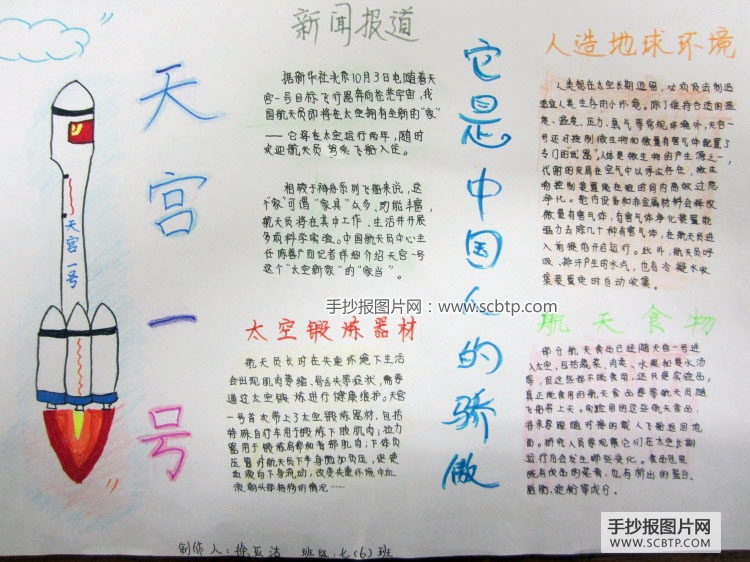 新闻报道
据新华社北京10月3日电,随着天
宫一号目标飞行器奔向茫茫宇宙,我
国航天员即将在太空拥有全新的"家"
——它将在太空运行两年,随时
欢迎航天员乘飞船入住。
相较于神舟系列飞船来说,这
个"家"可谓"家具"众多、功能丰富,
航天员将在其中工作、生活并开展
多项科学实验。中国航天员中心主
任陈善广向记者详细介绍天宫一号
这个"太空新家"的"家当"。
天宫一号
天宫一号
太空锻炼器材
航天员长时在失重环境下生活
会出现肌肉萎缩、骨丢失等症状,需要
通过太空锻炼进行健康维护。天宫
一号首次带上了太空锻炼器材,包括
特殊自行车用于锻炼下肢肌肉;拉力
器用于锻炼肩部和背部肌肉;下体负
压置对航天员下半身施加负压,促使
血液向下身流动,改变失重环境中血
液朝头部转移的情况……
它是中国人的骄傲
人造地球环境
人类想在太空长期逗留,必须设法制造
适宜人类生存的小环境。除了维持合适的温
度、湿度、压力、氧气等常规环境外,天宫一
号还对控制微生物和微量有害气体配置了
专门的"武器"。人体是微生物的产生源之一,
代谢的发展在空气中以浮尘存在,微生
物控制装置能在短时间内高效过滤
净化。舱内设备和非金属材料会释放
微量有害气体,有害气体净化装置能
强力去除几十种有害气体,在航天员进
入前提前开启运行。此外,航天员呼
吸、排汗产生的水汽,也有冷凝水收
集装置定时自动收集。
航天食物
部分航天食品已经随天宫一号进
入太空,包括蔬菜、肉类、水果和粟水汤
等,但这些都不能食用,还只是实验品,
真正能食用的航天食品要等航天员随
飞船带上天。实验用的这些航天食品,
将来要跟随对接的载人飞船返回地
面。研究人员要观察它们在太空长期
运行后会发生哪些变化。食品包里
既有成品的菜肴,也有析出的蛋白、
脂肪、淀粉等成分。
手抄报图片网:www.scbtp.com
制作人:徐亚洁 班级:七(6)班
手抄报图片网
WWW.SCBTP.COM